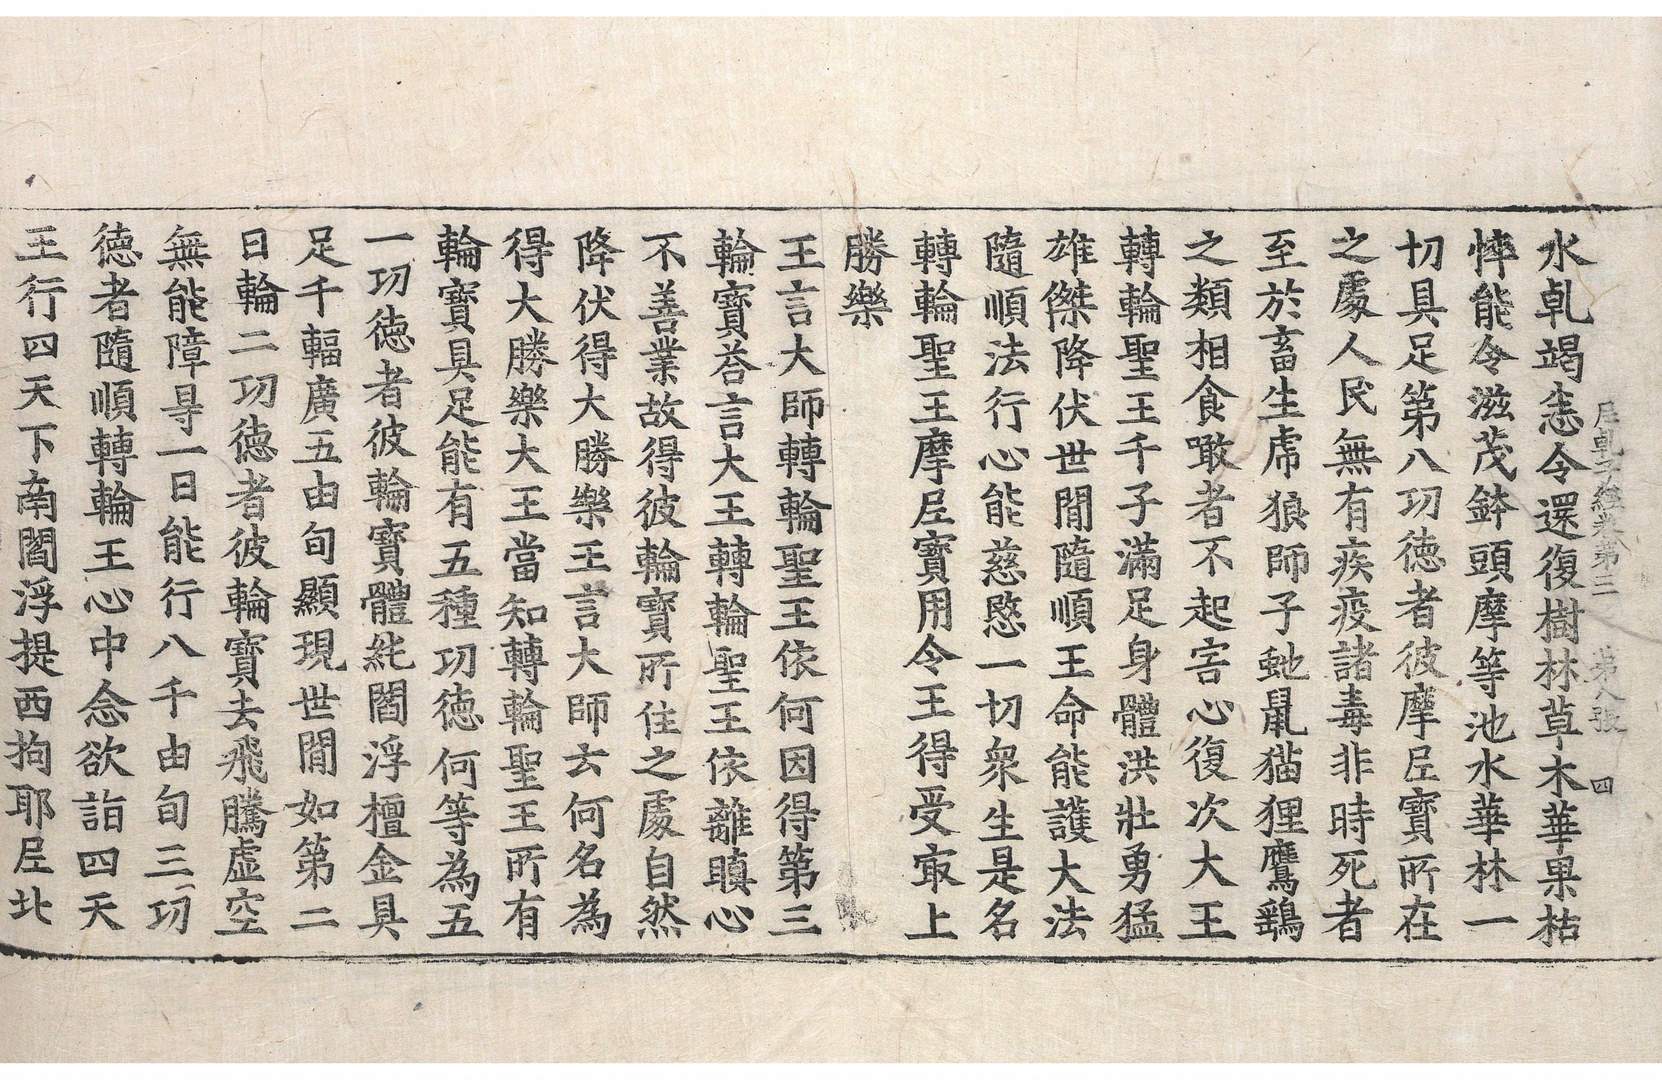 尼乹子經卷第三　第八張　四
水乹竭恙令還復樹林草木華果枯
悴能令滋茂鉢頭摩等池水華林一
切具足第八功徳者彼摩尼寶所在
之處人民無有疾疫諸毒非時死者
至於畜生虎狼師子虵鼠猫狸鷹鷂
之類相食噉者不起害心復次大王
轉輪聖王千子滿足身體洪壯勇猛
雄傑降伏世間隨順王命能護大法
隨順法行心能慈愍一切衆生是名
轉輪聖王摩尼寶用令王得受㝡上
勝樂
王言大師轉輪聖王依何因得第三
輪寶荅言大王轉輪聖王依離瞋心
不善業故得彼輪寶所住之處自然
降伏得大勝樂王言大師云何名為
得大勝樂大王當知轉輪聖王所有
輪寶具足能有五種功徳何等為五
一功徳者彼輪寶體純閻浮檀金具
足千輻廣五由旬顯現世間如第二
日輪二功徳者彼輪寶去飛騰虛空
無能障㝵一日能行八千由旬三功
徳者隨順轉輪王心中念欲詣四天
王行四天下南閻浮提西拘耶尼北